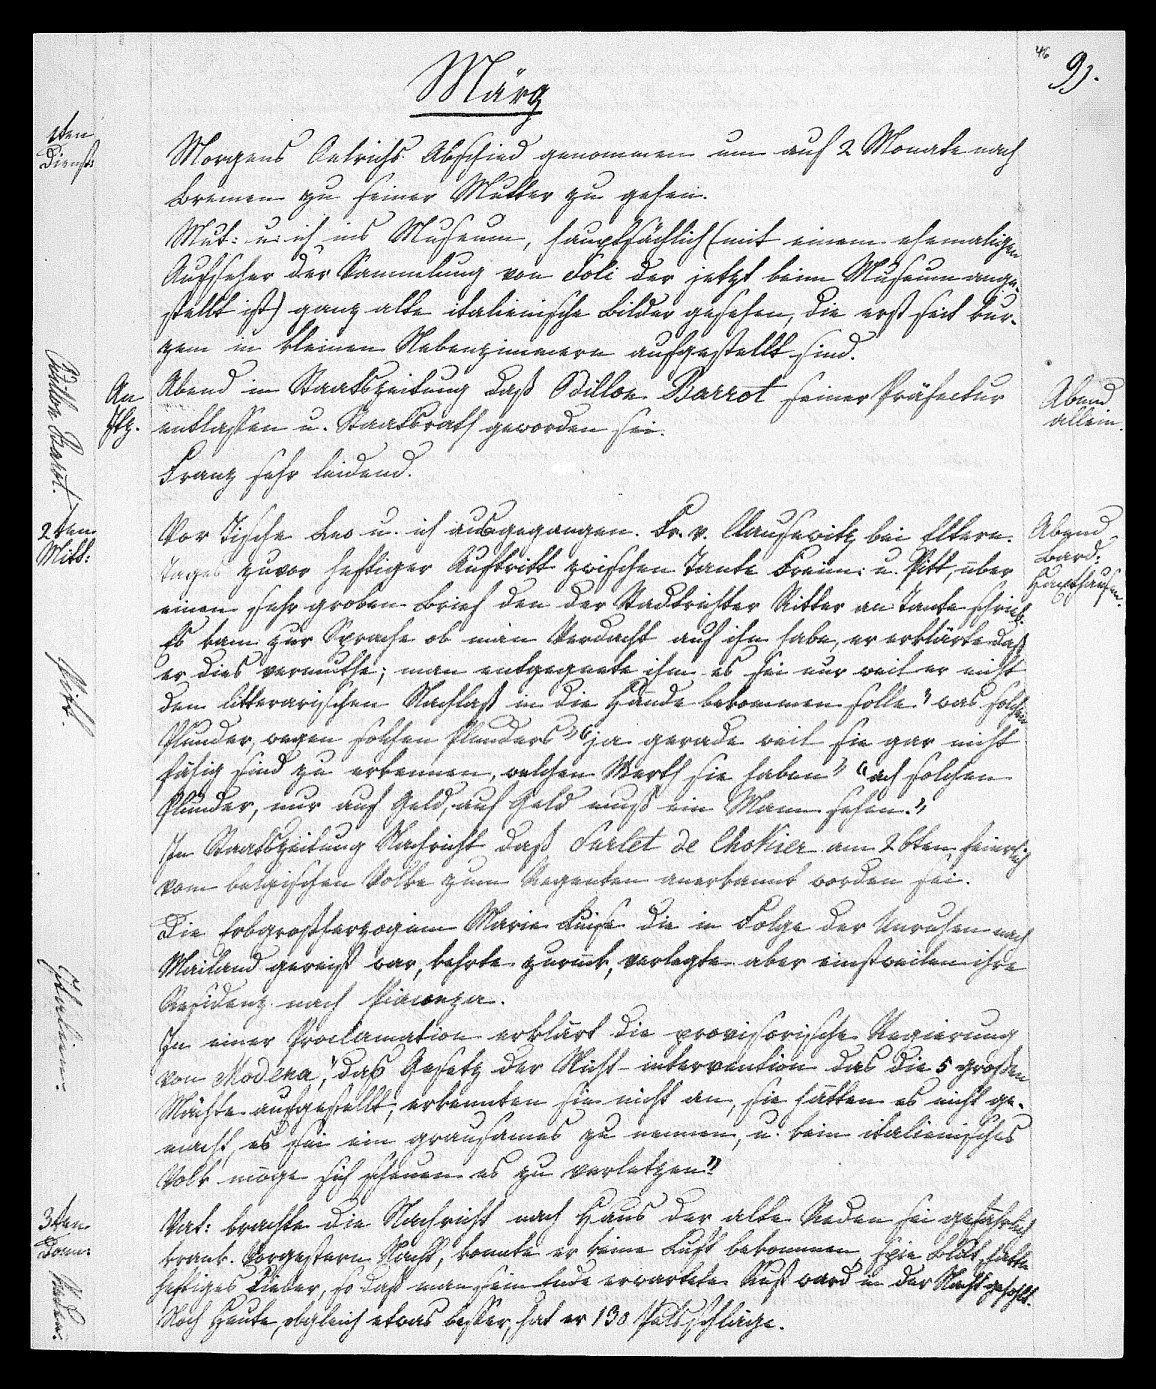 46
93.
März
1ten
Dienst:
Morgens Oelrichs Abschied genommen um auf 2 Monate nach
Bremen zu seiner Mutter zu gehen.
Mut: u: ich ins Museum, hauptsächlich (mit einem ehemaligen
Aufseher der Sammlung von Soli der jetzt beim Museum ange-
stellt ist) ganz alte italienische Bilder gesehen, die erst seit kur-
zem in kleinen Nebenzimmern aufgestellt sind.
An
Abend in Staatszeitung daß Odillon Barrot seiner Präfectur
entlassen u. Staatsrath geworden sei.
Abend
allein.
Odillon Barrot.
Franz sehr leidend.
2ten
Mitt:
Vor Tische Leo u. ich ausgegangen. Fr. v. Clausewitz bei Eltern.
Tages zuvor heftiger Auftritt zwischen Tante Freim: u. Pitt, über
einen sehr groben Brief den der Stadtrichter Ritter an Tante schrieb.
Es kam zur Sprache ob man Verdacht auf ihn habe, er erklärte daß
er dies vermuthe; man entgegnete ihm es sei nur weil er nicht
den litterarischen Nachlaß in die Hände bekommen solle" was solchen
Plunder, wegen solchen Plunders" "ja gerade weil sie gar nicht
fähig sind zu erkennen, welchen Werth sie haben" "ach solchen
Plunder, nur auf Geld, auf Geld muß ein Mann sehen."
Abend
Bard:
Pitt
In Staatszeitung Nachricht daß Surlet de Chokier am 26ten feierlich
vom belgischen Volke zum Regenten anerkannt worden sei.
Die Erbgroßherzoginn Marie Luise die in Folge der Unruhen nach
Mailand gereist war, kehrte zurück, verlegte aber einstweilen ihre
Residenz nach Piacenza.
Italien:
In einer Proclamation erklärt die provisorische Regierung
von Modena, "das Gesetz der Nicht-intervention das die 5 großen
Mächte aufgestellt; erkennten sie nicht an, sie hätten es nicht ge-
macht, es sei ein grausames zu nennen, u. kein italienisches
Volk möge sich scheuen es zu verletzen"
3ten
Donn:
Vat: brachte die Nachricht nach Haus der alte Reden sei gefährlich
krank. Vorgestern Nacht, konnte er keine Luft bekommen, spie Blut, hatte
heftiges Fieber, so daß man sein Ende erwartete. Rust ward in der Nacht geholt.
Noch Heute, obgleich etwas besser, hat er 130 Pulsschläge.
Reden: